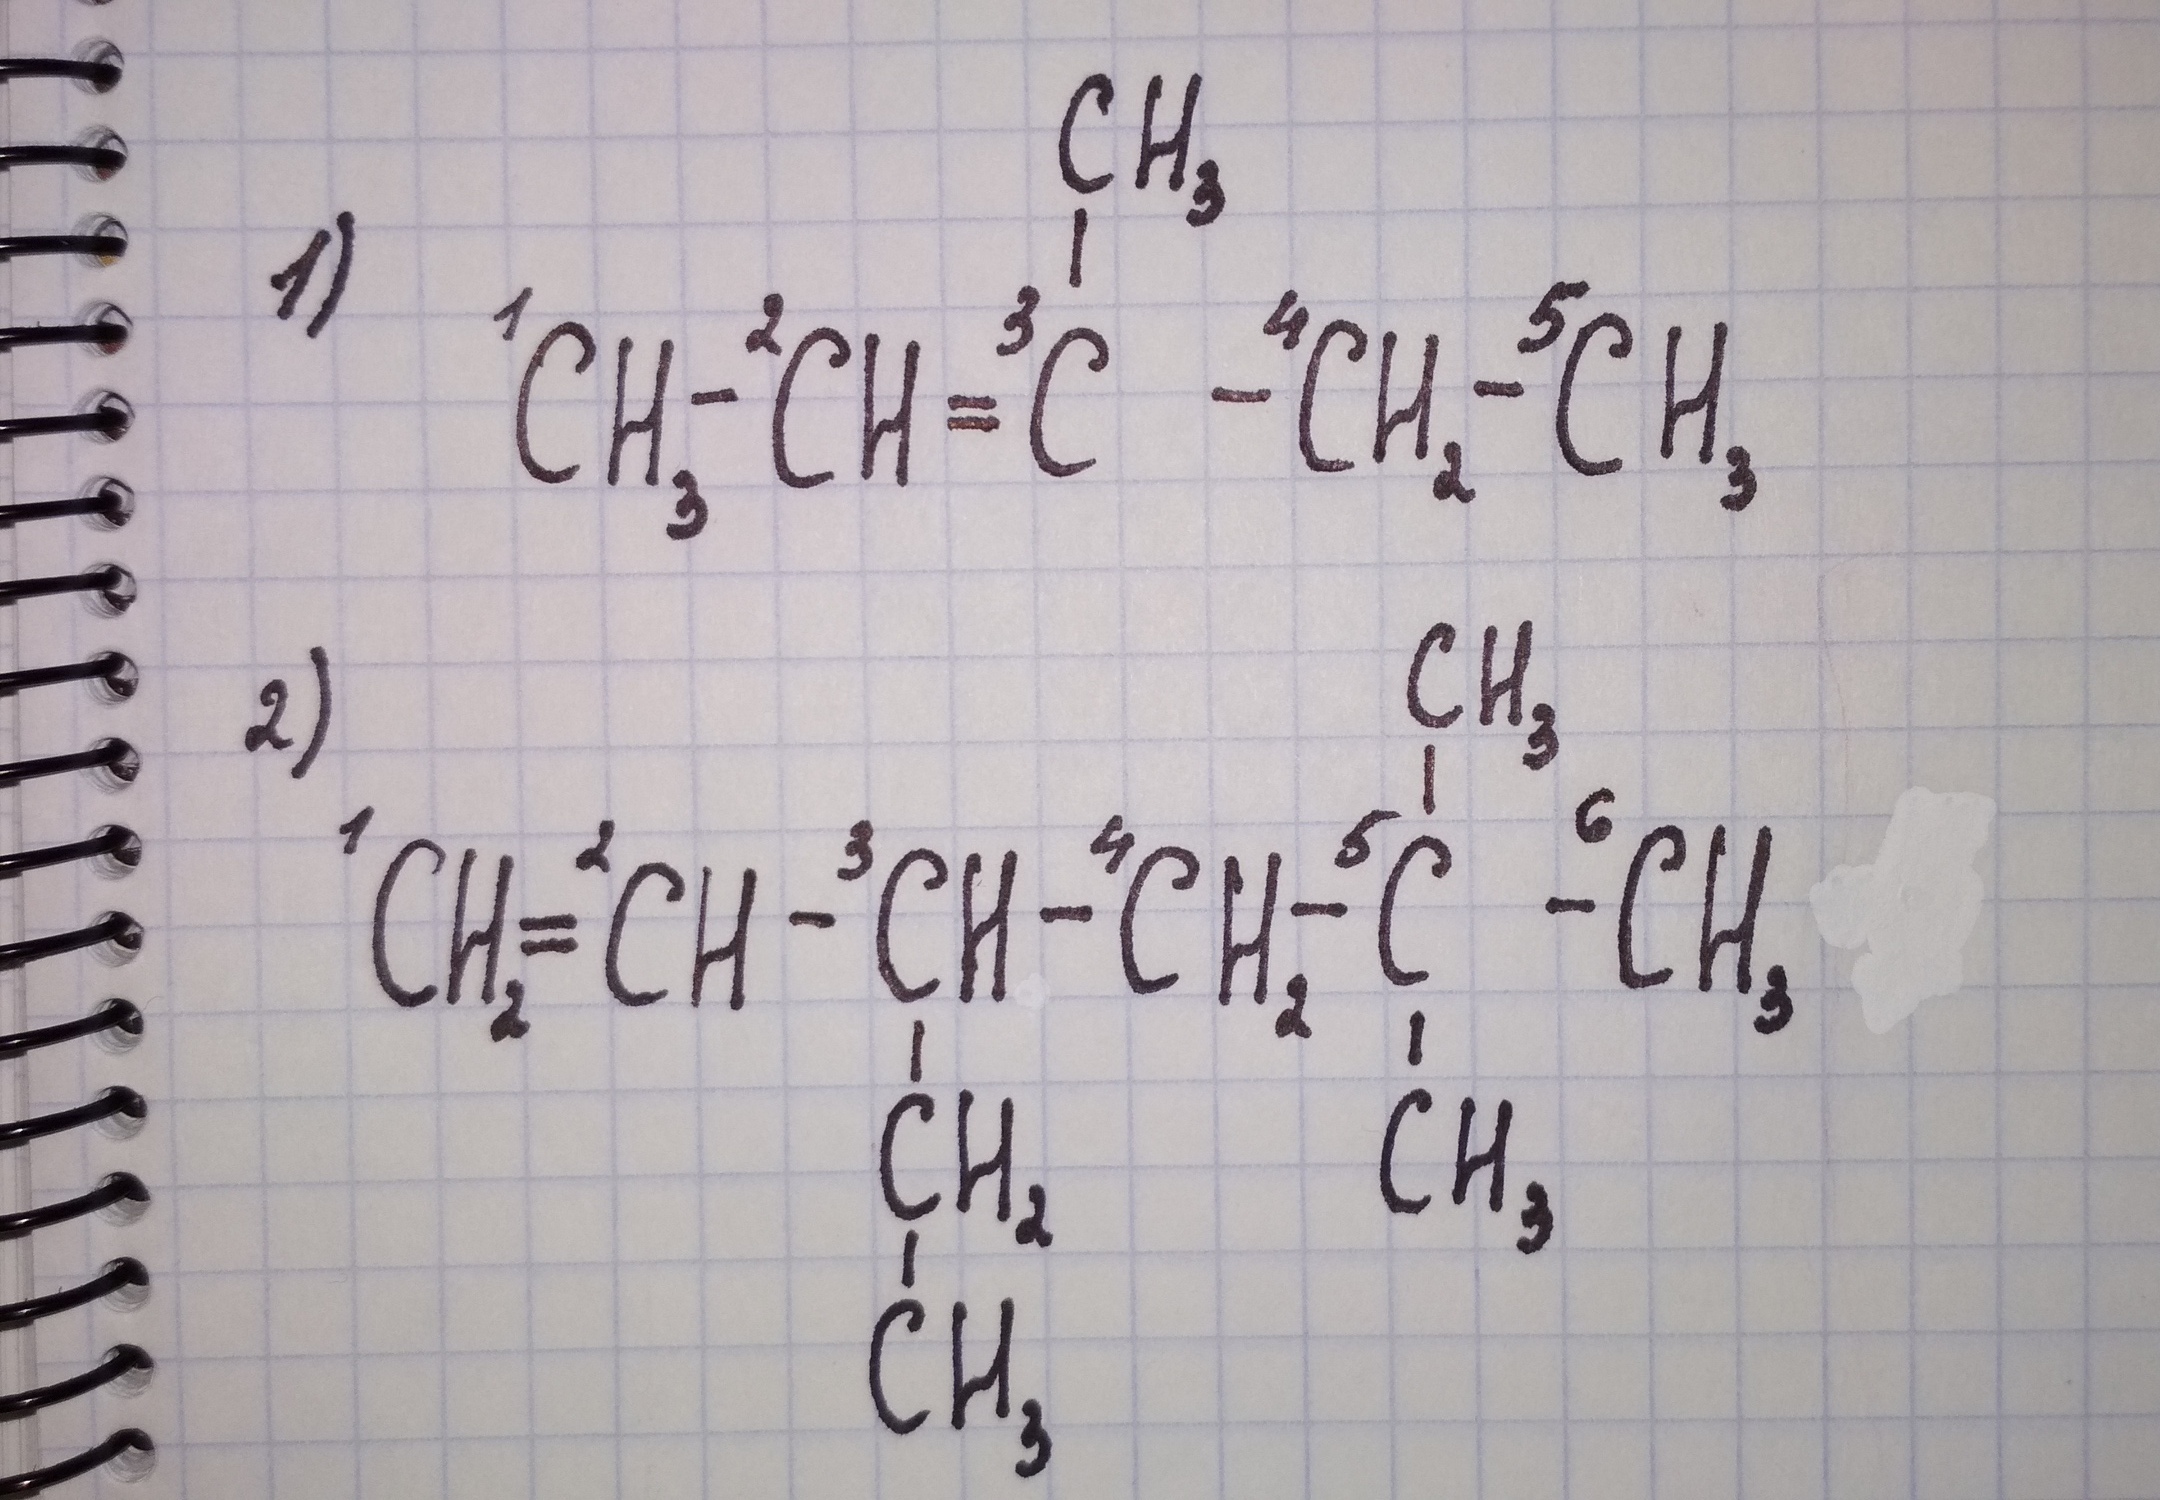 CH₃
1) ¹CH₃-²CH=³C-⁴CH₂-⁵CH₃
2)
CH₃
¹CH₂=²CH-³CH-⁴CH₂-⁵C-⁶CH₃
CH₂ CH₃
CH₃